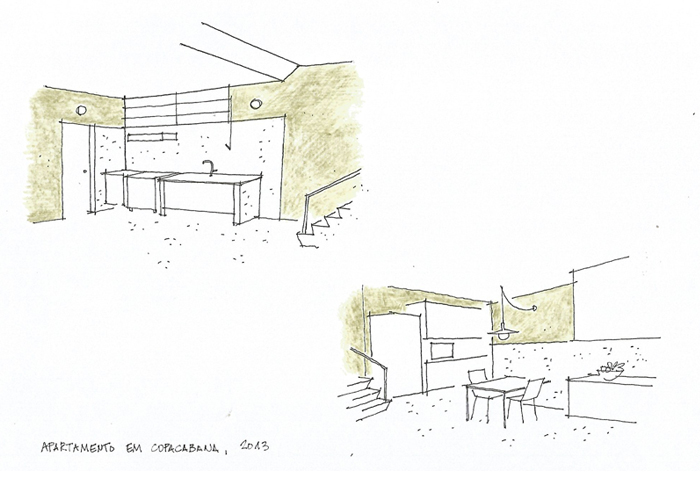 APARTAMENTO EM COPACABANA, 2013